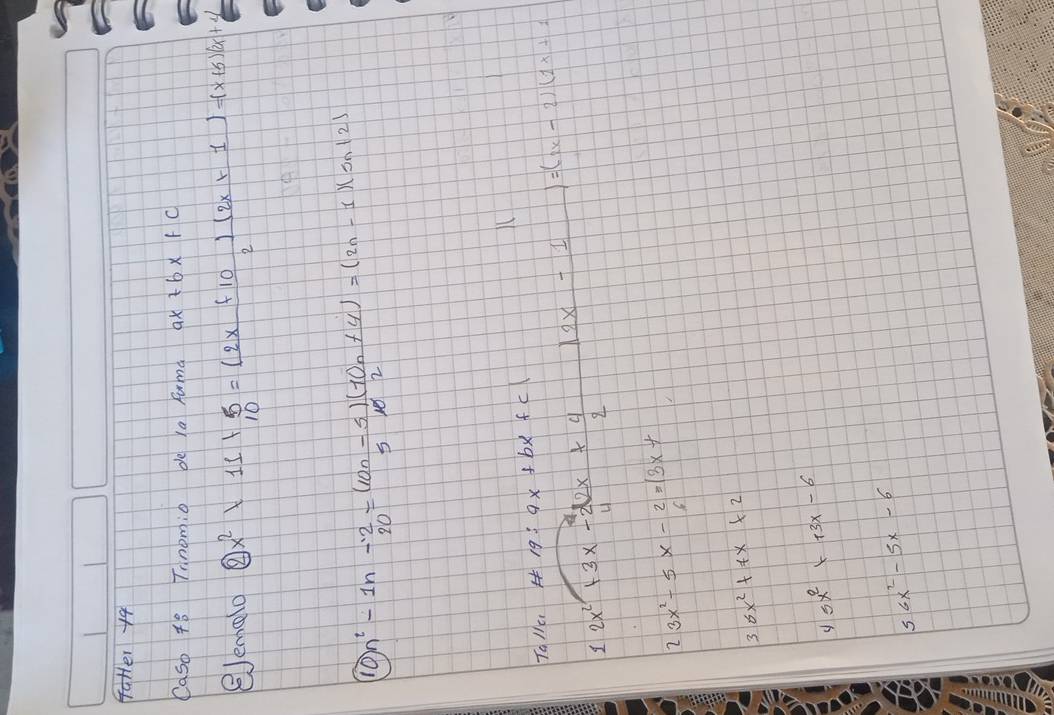 Taller
Caso 7: Trinomio de la forma ax + bx + c
Ejemplo 2x² + 11 + 5 = (2x + 10) (2x + 1) = (x+5)(2x+
10 2
10n² - 1n - 2 = (10n - 5)(10n + 4) = (2n - 1)(5n+2)
20 5 2
Taller # 19: ax + bx + c
1 2x² + 3x - 2 2x + 4 (2x - 1 ) = (x - 2)(2x +
4 2
2 3x² - 5x - 2 = (3x +
6
3 6x² + 7x + 2
4 5x² + 13x - 6
5. 6x² - 5x - 6